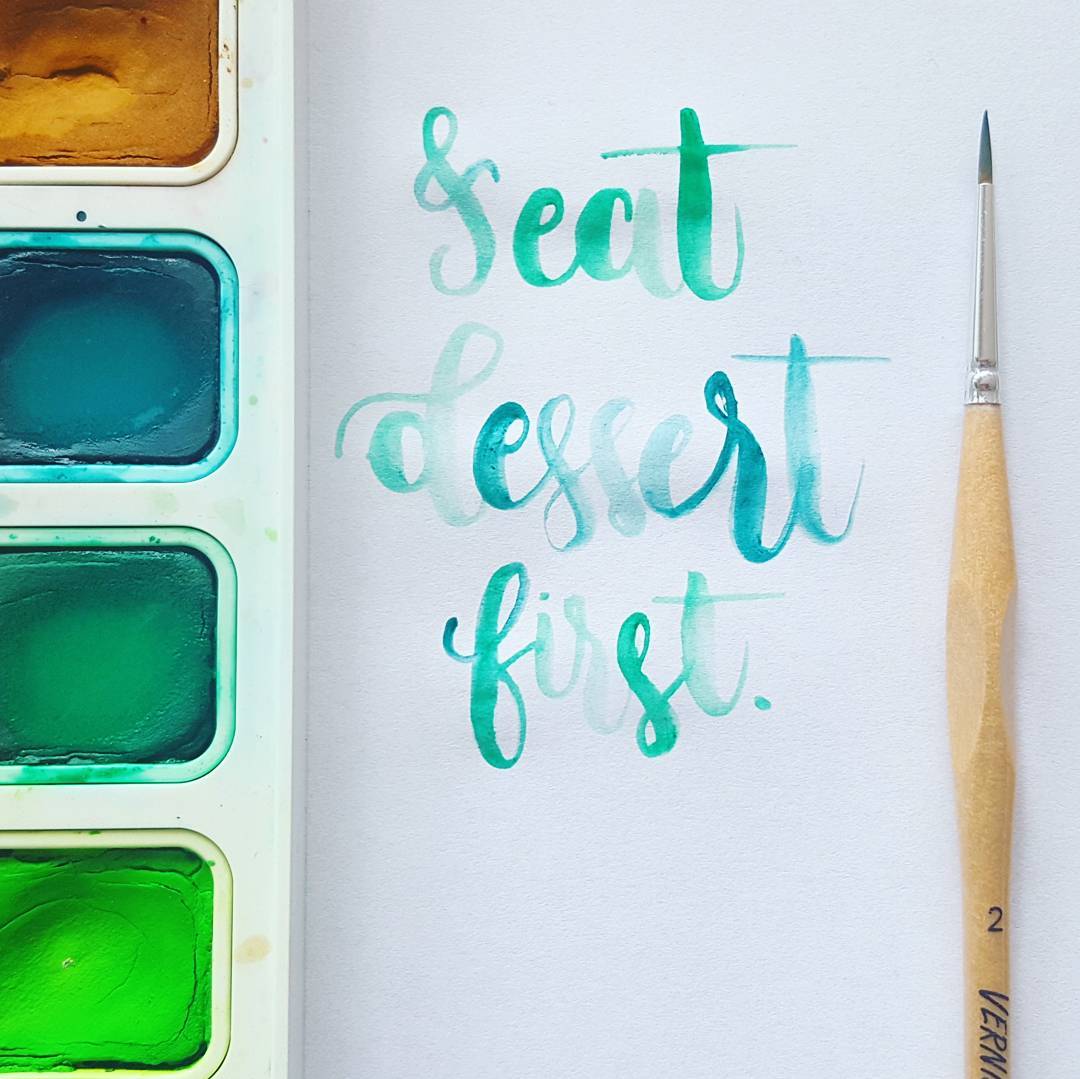 & eat
dessert
first.
2